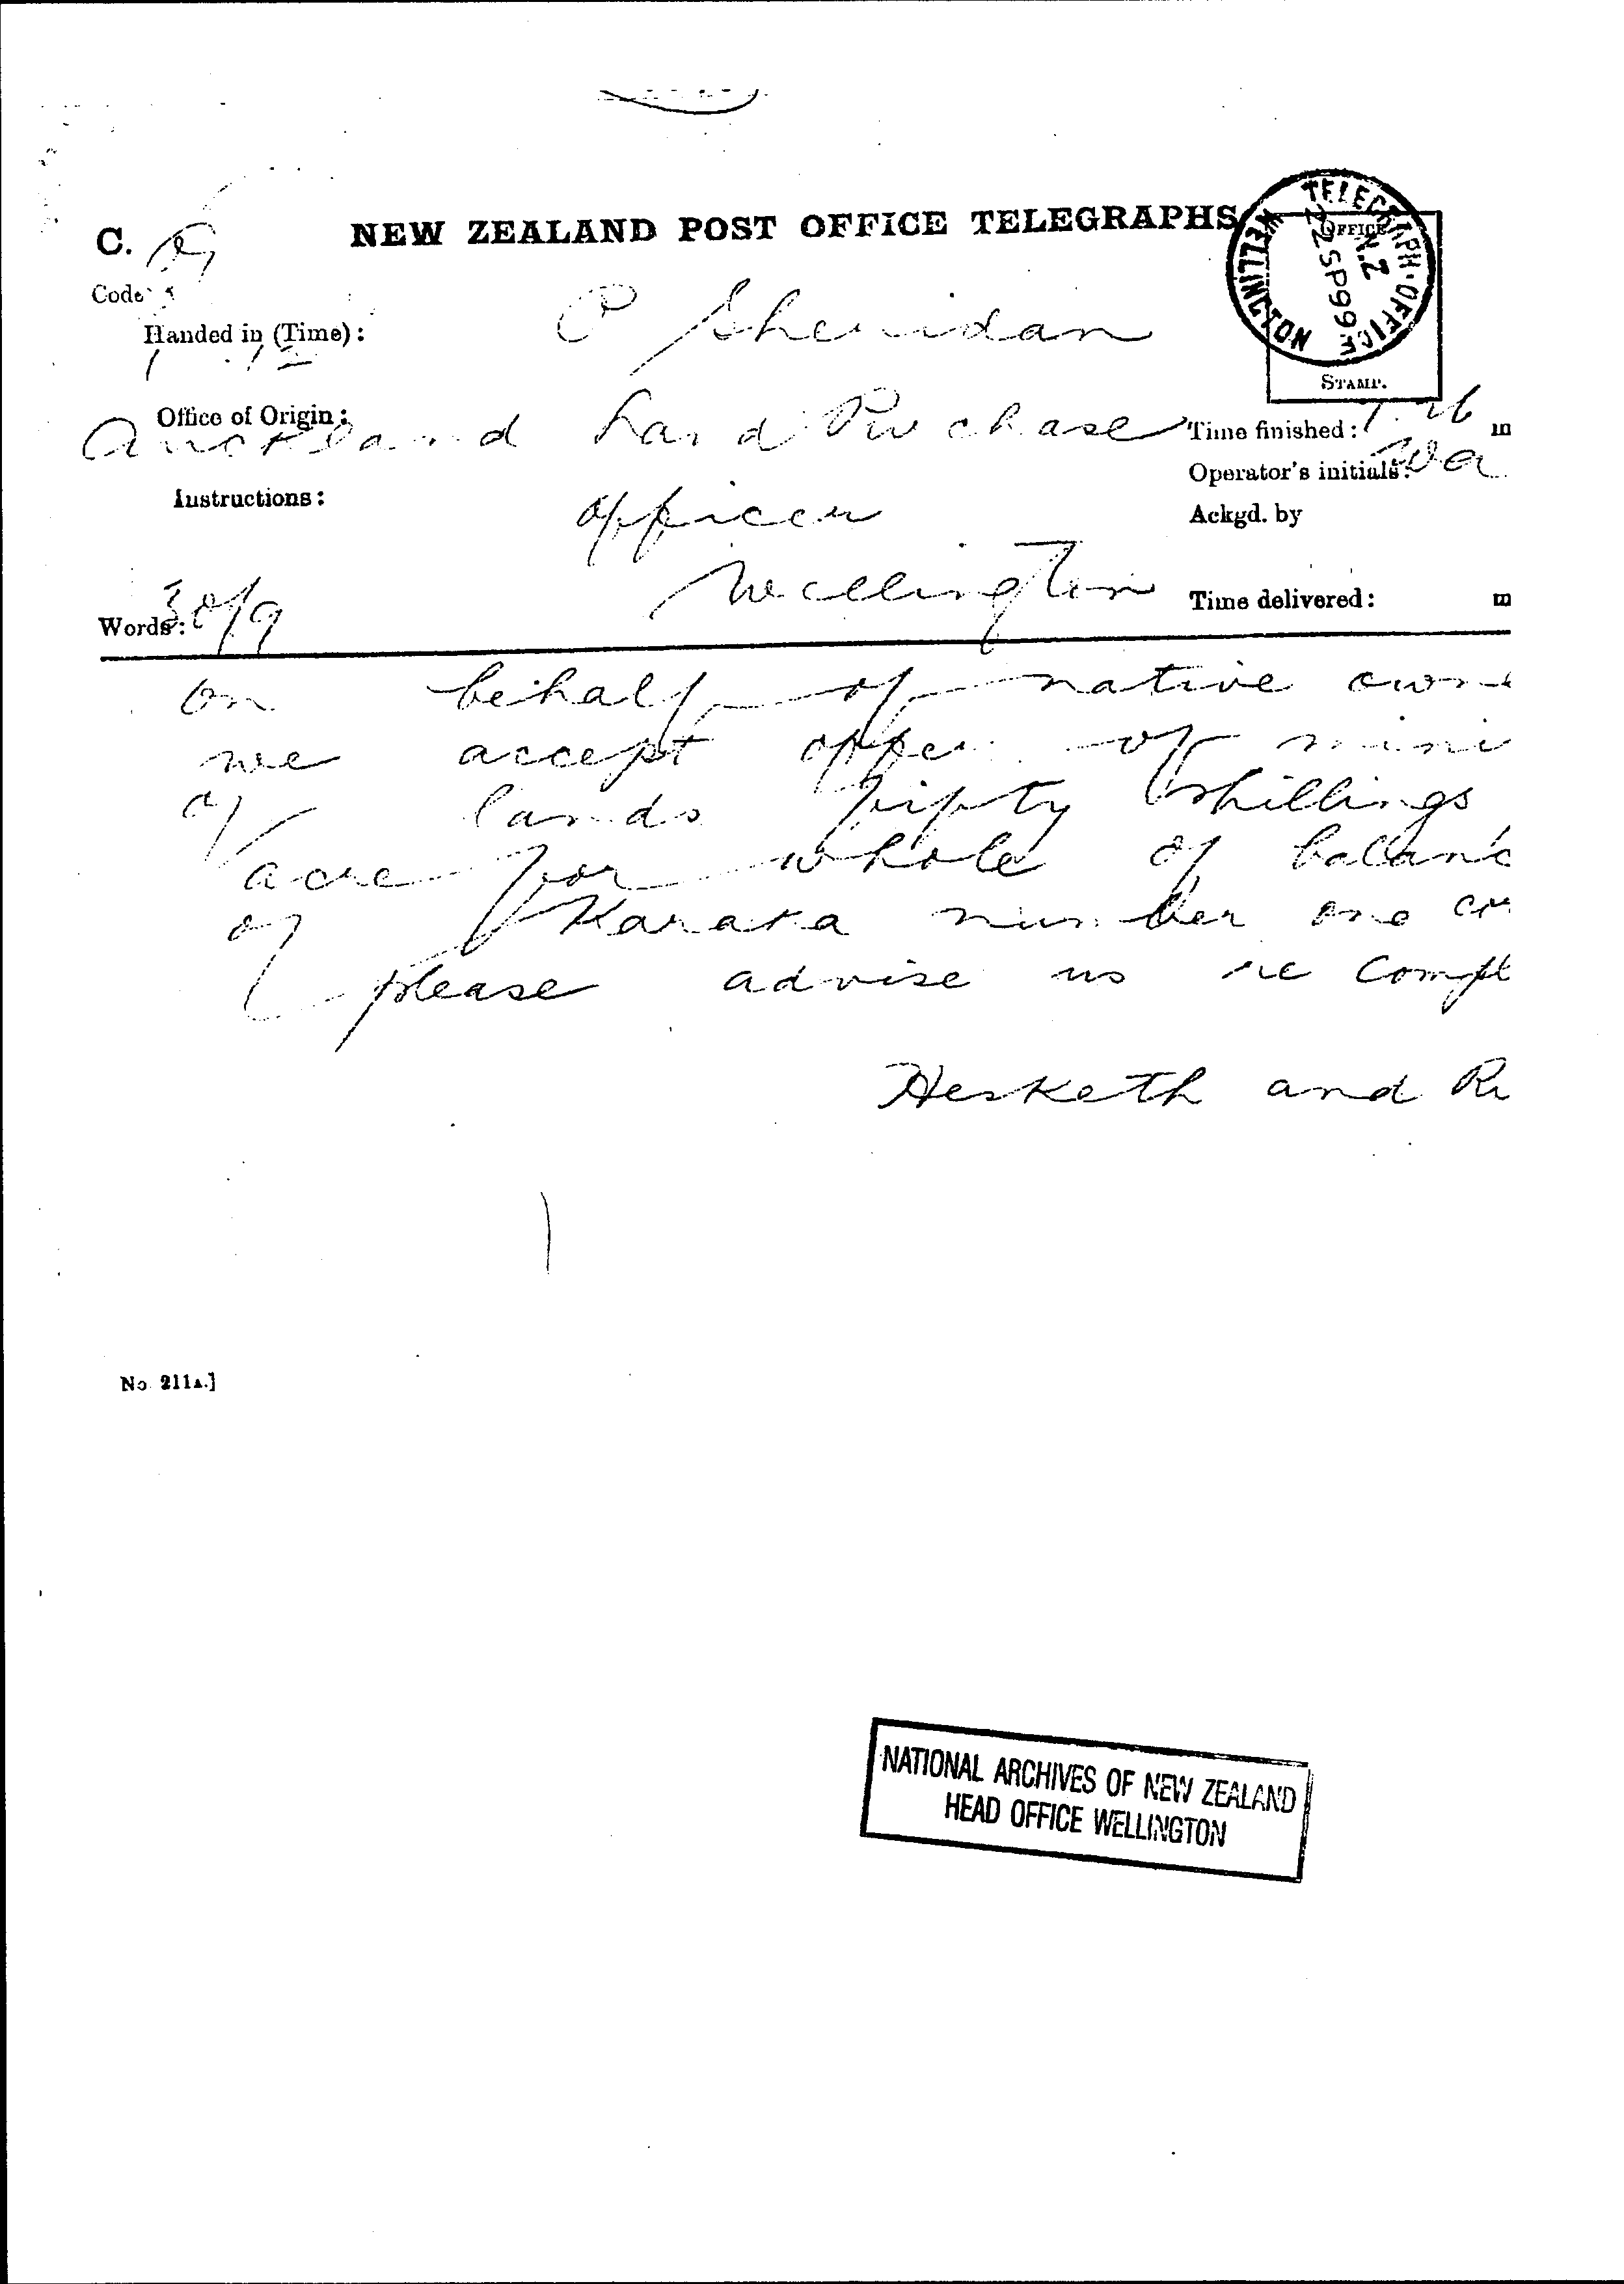 C.
NEW ZEALAND POST OFFICE TELEGRAPHS
WELLINGTON TELEGRAPH-OFFICE
N.Z
22 SP 99
OFFICE
Code
Handed in (Time):
P Sheridan
STAMP.
Office of Origin:
Auckland Land Purchase
Time finished: m
Operator's initials:
Instructions:
officer
Ackgd. by
Wellington
Time delivered: m
Words: 30/9
On behalf of native owne
we accept offer of mini
of lands fifty shillings
acre for whole of balanc
of Karaka number one
please advise us re compl
Hesketh and Ri
No. 211A.]
NATIONAL ARCHIVES OF NEW ZEALAND
HEAD OFFICE WELLINGTON